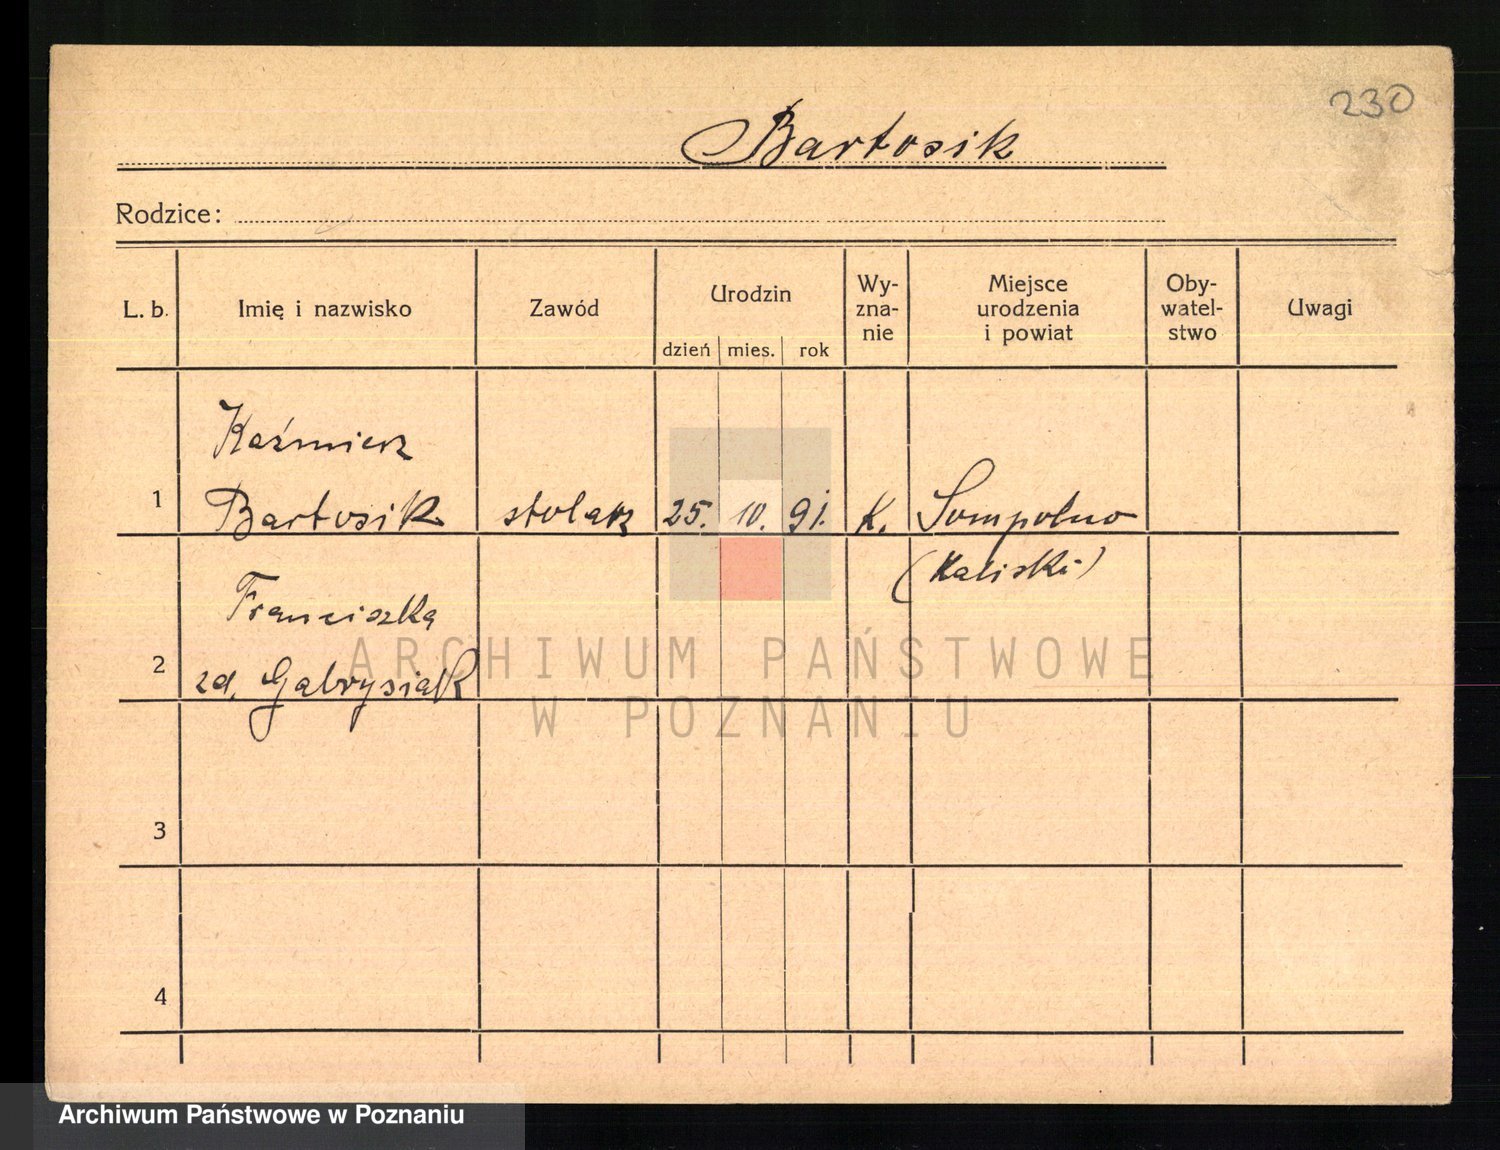 230
Bartosik
Rodzice:
L. b.
Imię i nazwisko
Zawód
Urodzin
dzień mies. rok
Wy-
zna-
nie
Miejsce
urodzenia
i powiat
Oby-
watel-
stwo
Uwagi
Kaźmierz
1 Bartosik stolarz 25. 10. 91. K. Sompolno
(Kaliski)
Franciszka
2 zd. Gabrysiak
3
4
ARCHIWUM PAŃSTWOWE
W POZNANIU
Archiwum Państwowe w Poznaniu